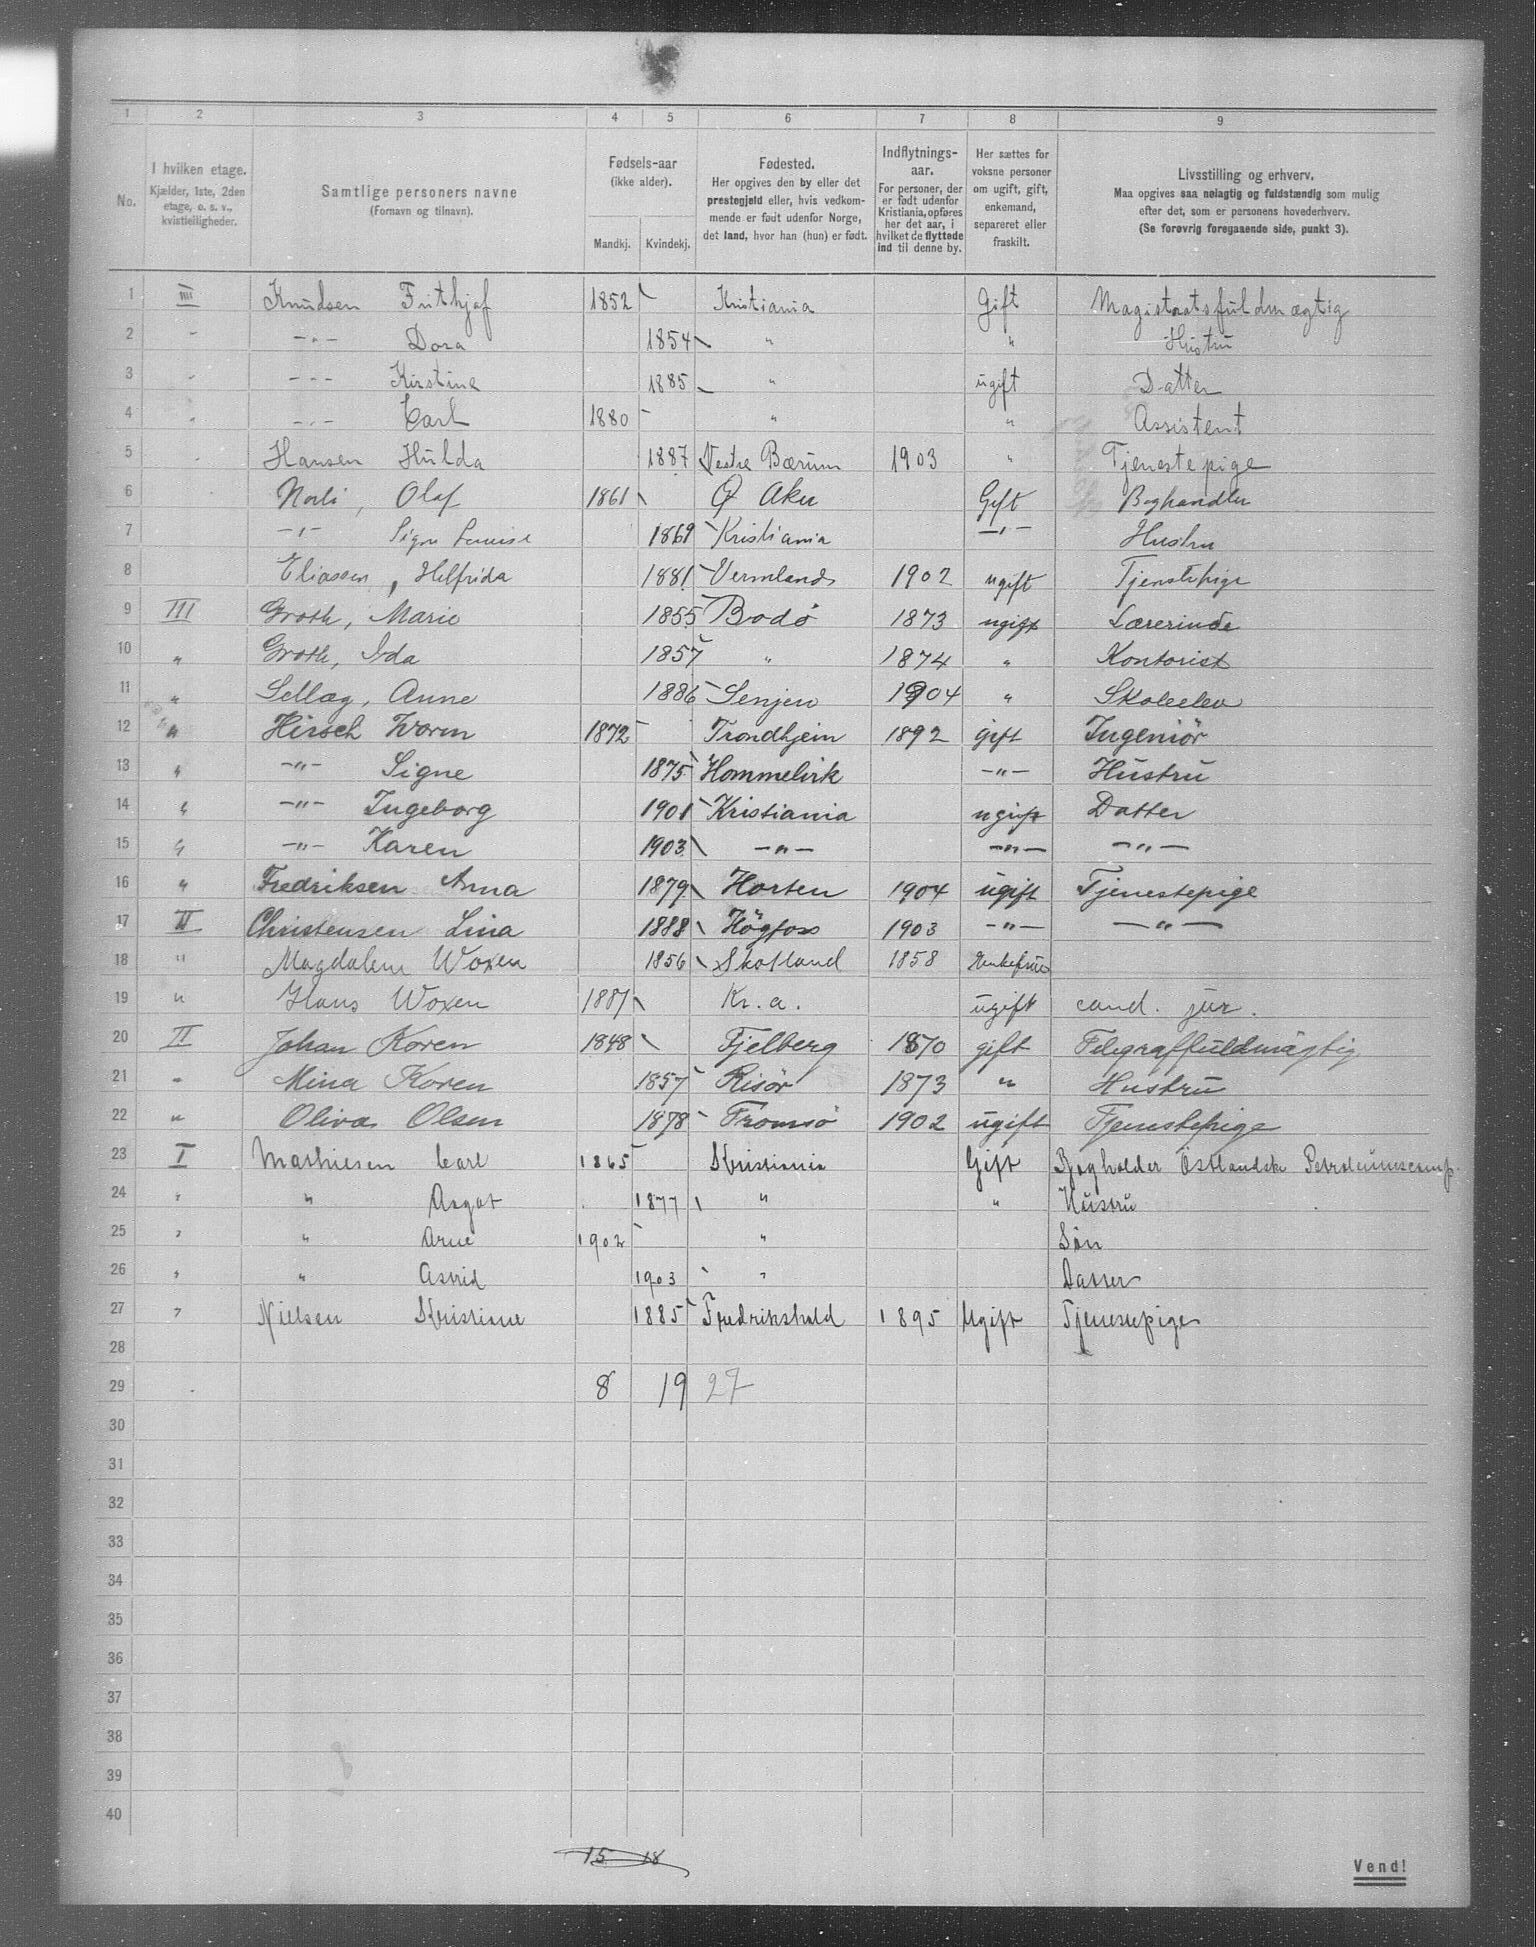 1 2 3 4 5 6 7 8 9
No.
I hvilken etage.
Kjælder, 1ste, 2den
etage, o. s. v.,
kvistleiligheder.
Samtlige personers navne
(Fornavn og tilnavn).
Fødsels-aar
(ikke alder).
Mandkj. Kvindekj.
Fødested.
Her opgives den by eller det
prestegjeld eller, hvis vedkom-
mende er født udenfor Norge,
det land, hvor han (hun) er født.
Indflytnings-
aar.
For personer, der
er født udenfor
Kristiania, opføres
her det aar, i
hvilket de flyttede
ind til denne by.
Her sættes for
voksne personer
om ugift, gift,
enkemand,
separeret eller
fraskilt.
Livsstilling og erhverv.
Maa opgives saa nøiagtig og fuldstændig som mulig
efter det, som er personens hovederhverv.
(Se forøvrig foregaaende side, punkt 3).
1 IIII Knudsen Frithjof 1852 Kristiania Gift Magistratsfuldmægtig
2 " —"— Dora 1854 " " Hustru
3 " —"— Kirstine 1885 " ugift Datter
4 " —"— Carl 1880 " " Assistent
5 Hansen Hulda 1887 Vestre Bærum 1903 " Tjenestepige
6 Norli, Olaf 1861 Ø Aker Gift Boghandler
7 —"— Signe Louise 1869 Kristiania —"— Hustru
8 Eliassen, Helfrida 1881 Vermland 1902 ugift Tjenstepige
9 III Groth, Marie 1855 Bodö 1873 ugift Lærerinde
10 " Groth, Ida 1857 " 1874 " Kontorist
11 " Sellæg, Anne 1886 Senjen 1904 " Skoleelev
12 " Hirsch 1872 Trondhjem 1892 gift Ingeniör
13 " —"— Signe 1875 Hommelvik —"— Hustru
14 " —"— Ingeborg 1901 Kristiania ugift Datter
15 " —"— Karen 1903 —"— —"— —"—
16 " Fredriksen Anna 1879 Horten 1904 ugift Tjenestepige
17 II Christensen Lina 1888 Högfoss 1903 —"— —"—
18 " Magdalene Woxen 1856 Skotland 1858 Enkefrue
19 " Hans Woxen 1881 Kr.a. ugift cand. jur.
20 II Johan Koren 1848 Fjelberg 1870 gift Telegraffuldmägtig
21 " Mina Koren 1857 Risör 1873 " Hustru
22 " Oliva Olsen 1878 Tromsö 1902 ugift Tjenestepige
23 I Mathiesen Carl 1865 Kristiania Gift Bogholder Östlandske Petroleumscomp.
24 " " Asgot 1877 " " Hustru
25 " " Arne 1902 " Sön
26 " " Astrid 1903 " Datter
27 " Nielsen Kristiane 1885 Fredrikshald 1895 Ugift Tjenestepige
28
29 8 19 27
30
31
32
33
34
35
36
37
38
39
40
15 18
Vend!